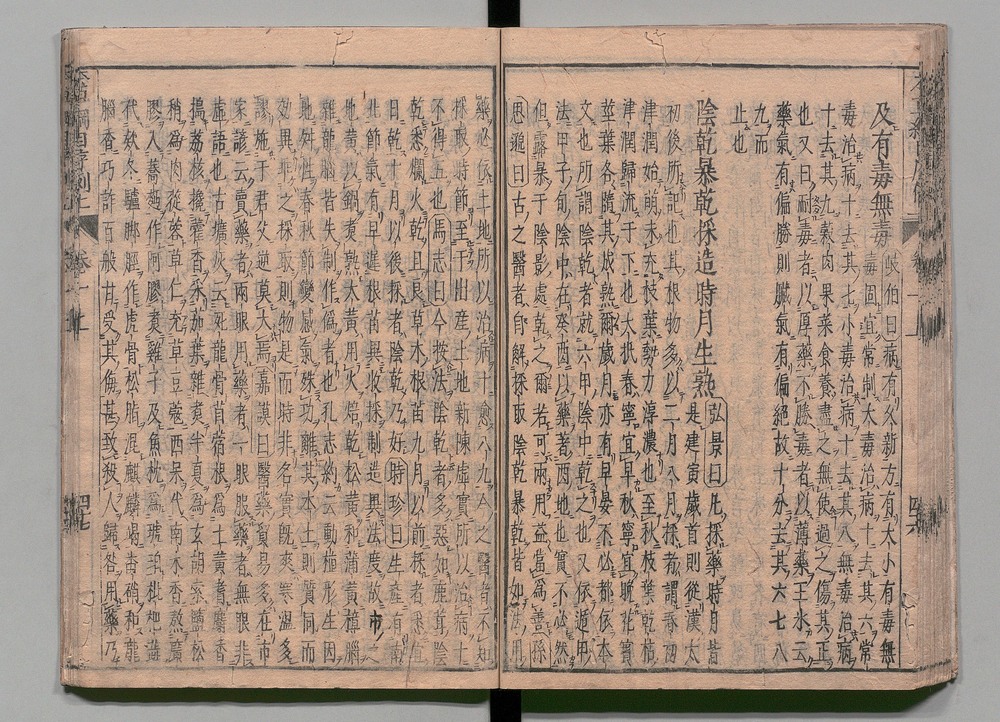 及有毒無毒 岐伯曰病有久新方有大小有毒無
毒固宜常制大毒治病十去其六常
毒治病十去其七小毒治病十去其八無毒治病
十去其九穀肉果菜食養盡之無使過之傷其正
也又曰耐毒者以厚藥不勝毒者以薄藥王氷云
藥氣有偏勝則臟氣有偏絕故十分去其六七八
九而
止也
陰乾暴乾採造時月生熟 弘景曰凡採藥時月皆
是建寅歲首則從漢太
初後所記也其根物多以二月八月採者謂春初
津潤始萌未充枝葉勢力淳濃也至秋枝葉乾枯
津潤歸流于下也大抵春寧宜早秋寧宜晚花實
莖葉各隨其成熟爾歲月亦有早晏不必都依本
文也所謂陰乾者就六甲陰中乾之也又依遁甲
法甲子旬陰中在癸酉以藥著酉地也實不必然
但露暴于陰影處乾之爾若可兩用益當爲善孫
思邈曰古之醫者自解採取陰乾暴乾皆如法用
藥必依土地所以治病十愈八九今之醫者不知
採取時節至于出産土地新陳虛實所以治病十
不得五也馬志曰今按法陰乾者多惡如鹿茸陰
乾悉爛火乾且良草木根苗九月以前採者悉宜
日乾十月以後採者陰乾乃好時珍曰生産有南
北節氣有早遲根苗異收採制造異法度故市之
地黃以鍋煮熟大黃用火焙乾松黃和蒲黃樟腦
雜龍腦皆失制作僞者也孔志約云動植形生因
地舛性春秋節變感氣殊功離其本土則質同而
效異乖于採取則物是而時非名實旣爽寒溫多
謬施于君父逆莫大焉嘉謨曰醫藥貿易多在市
家諺云賣藥者兩眼用藥者一眼服藥者無眼非
虛語也古壙灰云死龍骨苜蓿根爲土黃耆麝香
搗荔核攙藿香采茄葉雜煮半夏爲玄胡索鹽松
稍爲肉蓯蓉草仁充草豆蔻西呆代南木香熬廣
膠入蕎麪作阿膠煮雞子及魚枕爲琥珀枇杷蕋
代欵冬驢脚脛作虎骨松脂混麒麟竭番硝和龍
腦香巧詐百般甘受其侮甚致殺人歸咎用藥乃